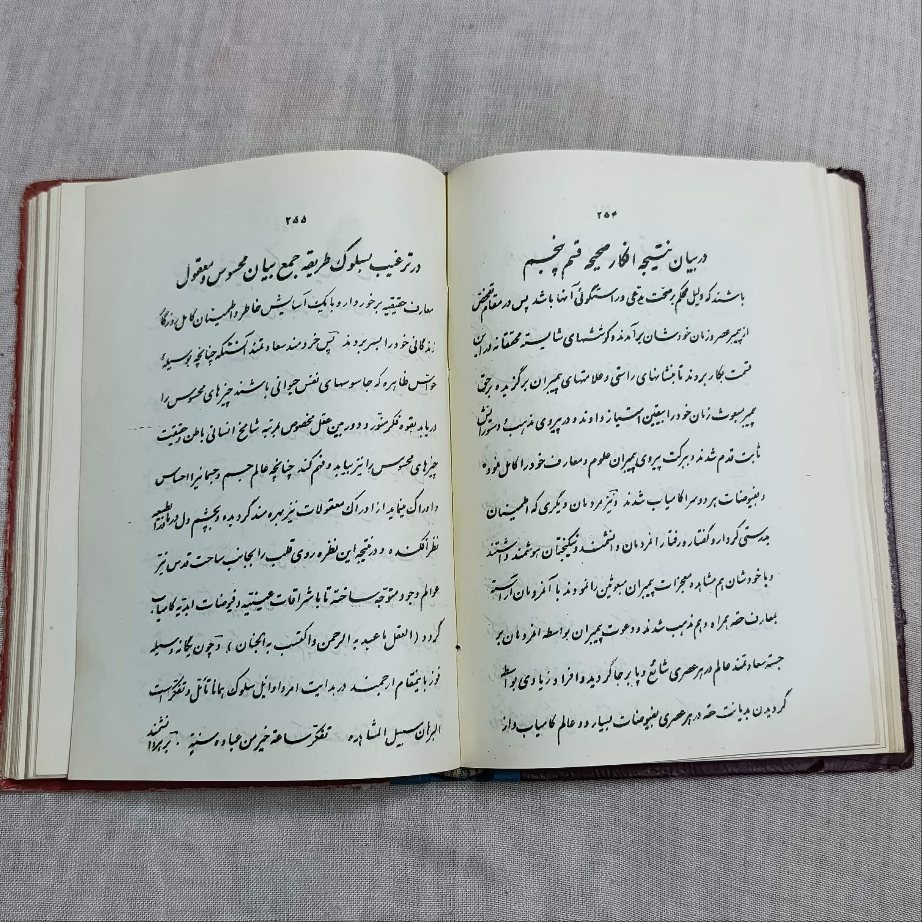 ۲۵۴
در بیان نتیجه افکار صحیحه قسم پنجم
باشند که دلیل محکم بر صحت مدعی و راستگوئی آنها باشد پس در مقام تفحص
از پیمبر عصر و زمان خودشان برآمدند و کوششهای شایسته محققانه در این
قسمت بکار بردند تا بنشانهای راستی و علامتهای پیمبران برگزیده بر حق
پیمبر مبعوث زمان خود را بیقین امتیاز دادند و در پیروی مذهب و دستوراتش
ثابت قدم شدند و ببرکت پیروی پیمبران علوم و معارف خود را کامل نموده
و بفیوضات هر دو سرا کامیاب شدند و نیز مردمان دیگری که اطمینان
بدرستی کردار و گفتار و رفتار آنمردمان دانشمند و نیکبختان هوشمند داشتند
و یا خودشان هم مشاهده معجزات پیمبران مبعوثین را نمودند با آنمردمان آراسته
بمعارف حقه همراه و هم مذهب شدند و دعوت پیمبران بواسطه آنمردمان بر
جسته سعادتمند عالم در هر عصری شایع و پا برجا گردید و افراد زیادی بواسطه
گردیدن بدیانت حقه در هر عصری بفیوضات بسیار دو عالم کامیاب و از
۲۵۵
در ترغیب بسلوک طریقه جمع بیان محسوس و معقول
معارف حقیقیه برخوردار و با نیک آسایش خاطر و اطمینان کامل روزگار
زندگانی خود را بسر بردند پس خردمند سعادتمند آنستکه چنانچه بوسیله
حواس ظاهره که جاسوسهای نفس حیوانی باشند چیزهای محسوس را
دریابد بقوه فکر منور و دوربین عقل مخصوص مرتبه شامخ انسانی باطن و حقیقت
چیزهای محسوس را نیز بیابد و فهم کند چنانچه عالم جسم و جسمانیرا احساس
و ادراک مینماید از ادراک معقولات نیز بهره مند گردیده و بچشم دل
نظر افکنده و در نتیجه این نظره روی قلب را بجانب ساحت قدس نیز
عوالم وجود متوجه ساخته تا باشراقات و فیوضات ابدیه کامیاب
گردد (العقل ما عبد به الرحمن و اکتسب به الجنان) و چون یگانه وسیله
فوز باینمقام ارجمند در بدایت امر و اوایل سلوک همانا تأمل و تفکر است
البرهان سبیل المشاهده تفکر ساعة خیر من عبادة سنة